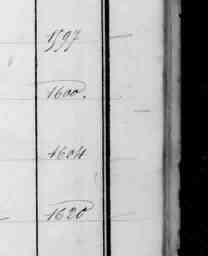 1597
1600.
1604
1620